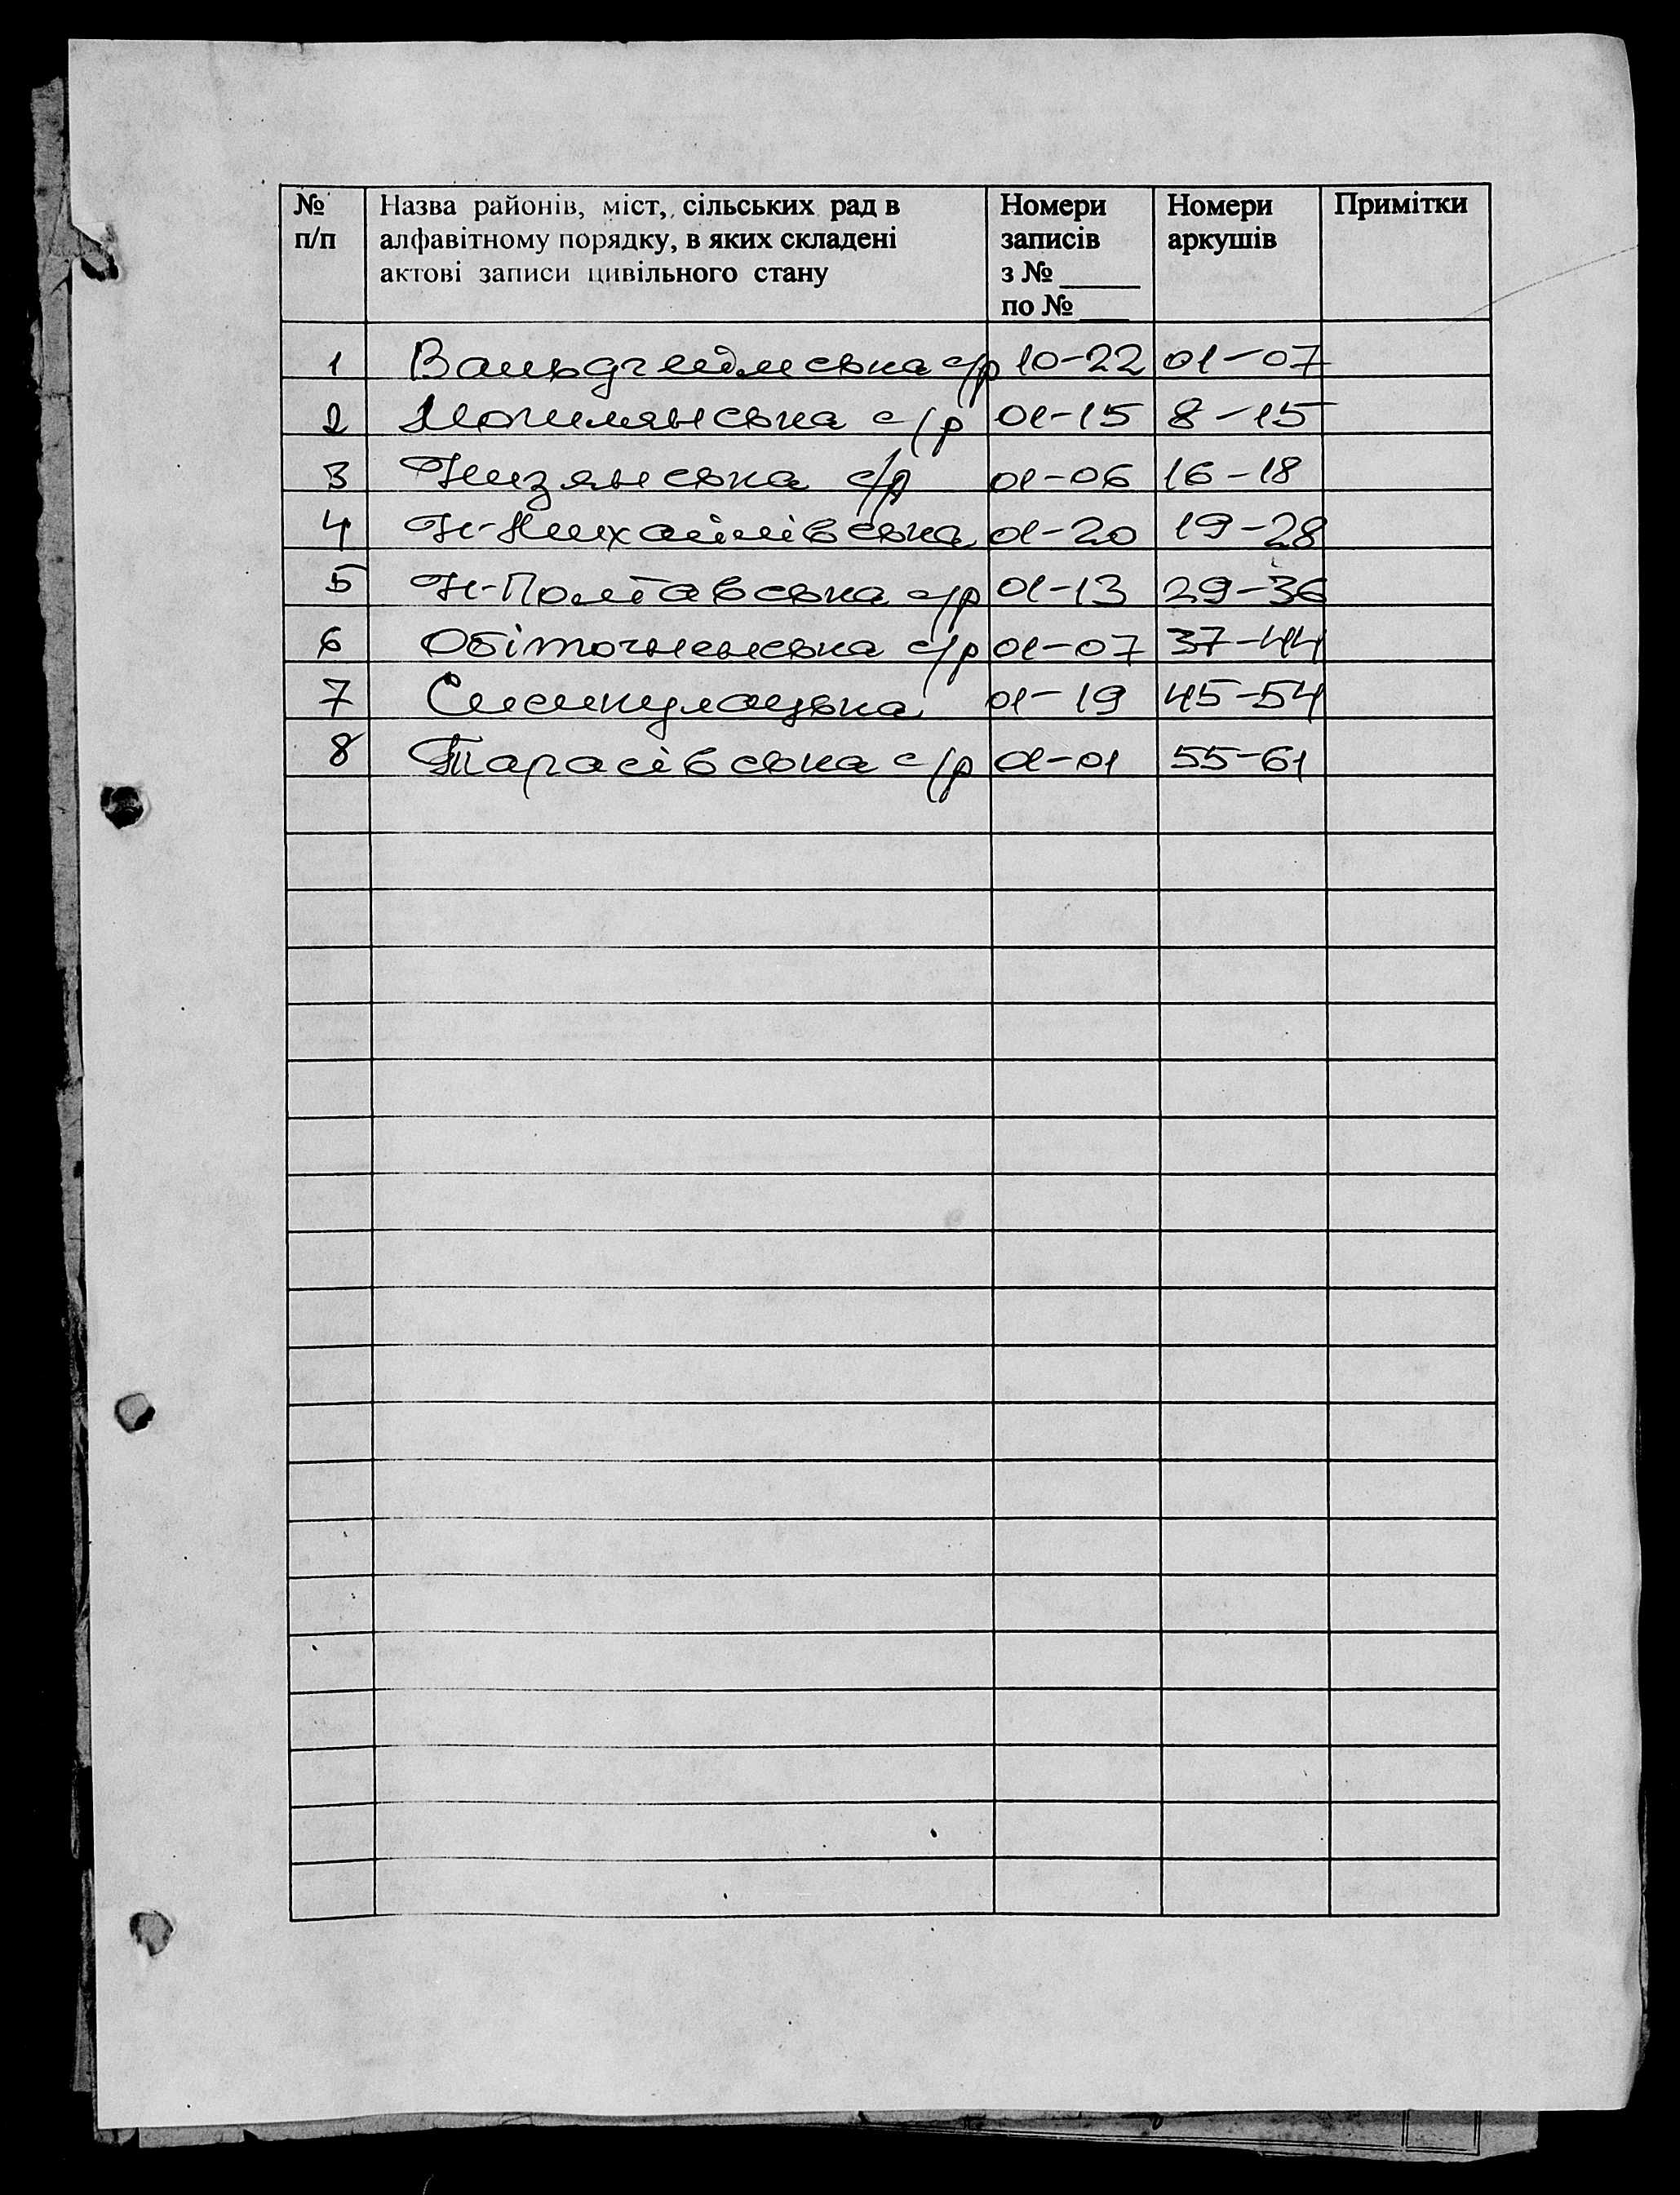 № п/п Назва районів, міст, сільських рад в алфавітному порядку, в яких складені актові записи цивільного стану Номери записів з № _____ по № ___ Номери аркушів Примітки
1 Вальдгеймська с/р 10-22 01-07
2 с/р 01-15 8-15
3 Низянська с/р 01-06 16-18
4 Н-Михайлівська 01-20 19-28
5 Н-Полтавська с/р 01-13 29-36
6 Обіточненська с/р 01-07 37-44
7 01-19 45-54
8 Тарасівська с/р 01-01 55-61